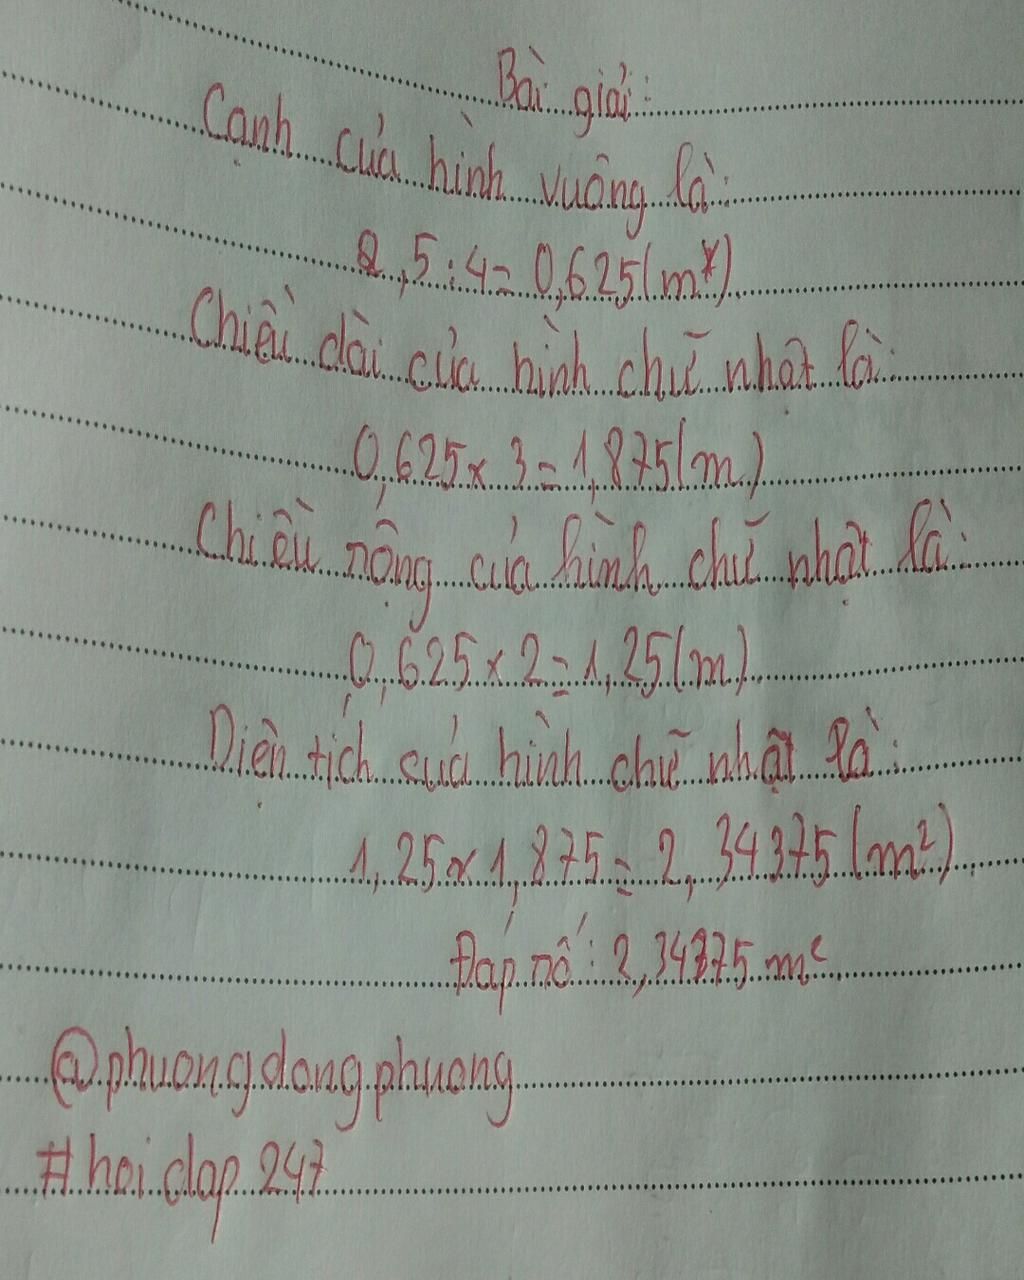 Bài giải:
Cạnh của hình vuông là:
2,5:4=0,625(m)
Chiều dài của hình chữ nhật là:
0,625x3=1,875(m)
Chiều rộng của hình chữ nhật là:
0,625x2=1,25(m)
Diện tích của hình chữ nhật là:
1,25x1,875=2,34375(m²)
Đáp số: 2,34375 m²
@phuongdongphuong
#hoidap247